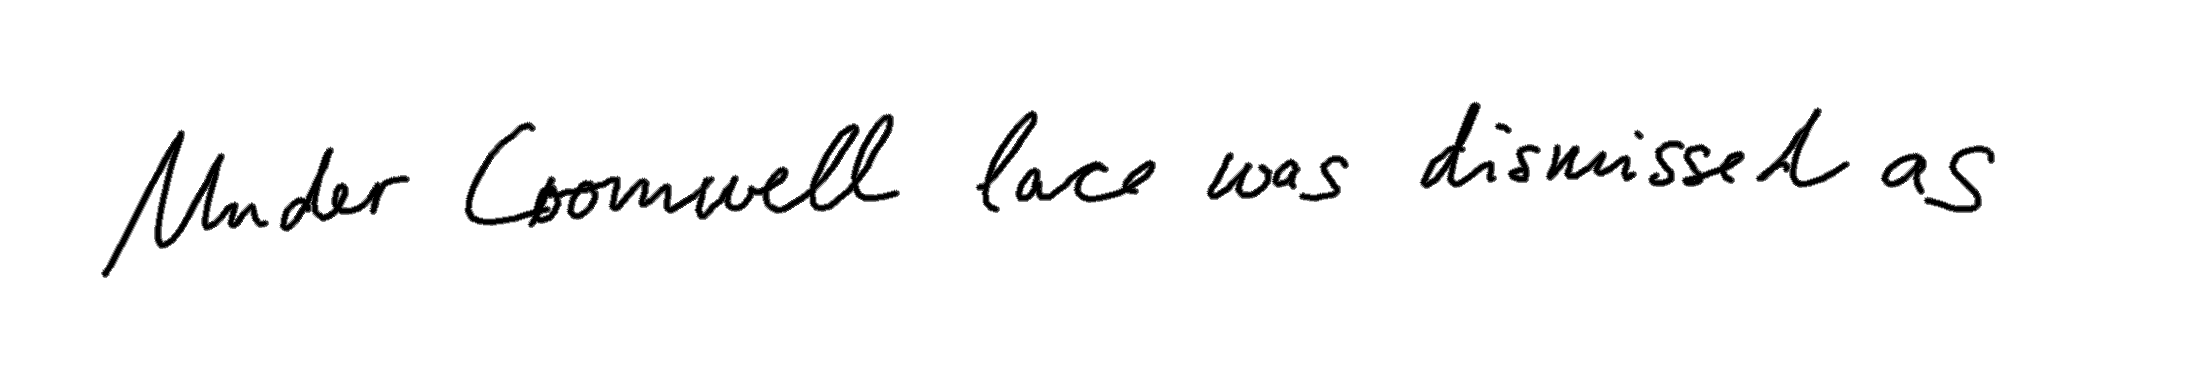 Under Cromwell lace was dismissed as